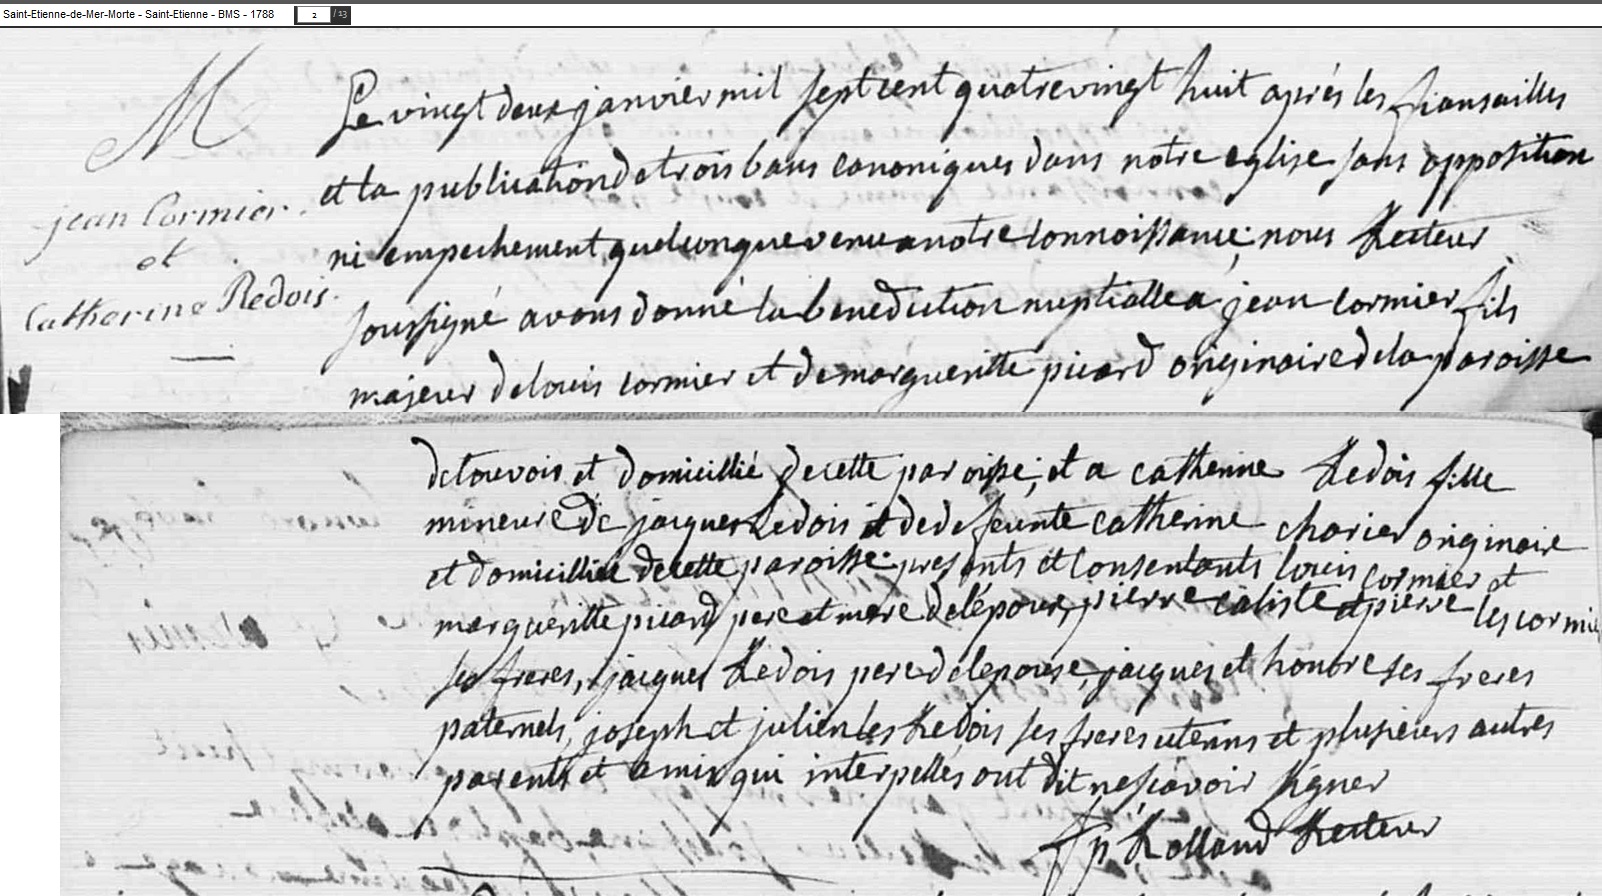 Saint-Etienne-de-Mer-Morte - Saint-Etienne - BMS - 1788 2 / 13
M
jean Cormier
et
Catherine Redois
Le vingt deux janvier mil sept cent quatrevingt huit après les fiansailles
et la publication de trois bans canoniques dans notre eglise sans opposition
ni empechement quelconque venu a notre connoissance, nous Recteur
soussigné avons donné la benediction nuptialle a jean cormier fils
majeur de louis cormier et de margueritte picard originaire de la paroisse
de touvois et domicillié de cette paroisse, et a catherine Redois fille
mineure de jacques Redois et de defeunte catherine charier originaire
et domicilliée de cette paroisse. presents et consentants louis cormier et
margueritte picard pere et mere de lépoux, pierre caliste et pierre les cormier
ses freres, jacques Redois pere de lepouse, jacques et honore ses freres
paternels, joseph et julien les Redois ses freres uterins et plusieurs autres
parents et amis qui interpellés ont dit ne sçavoir signer
Rolland Recteur